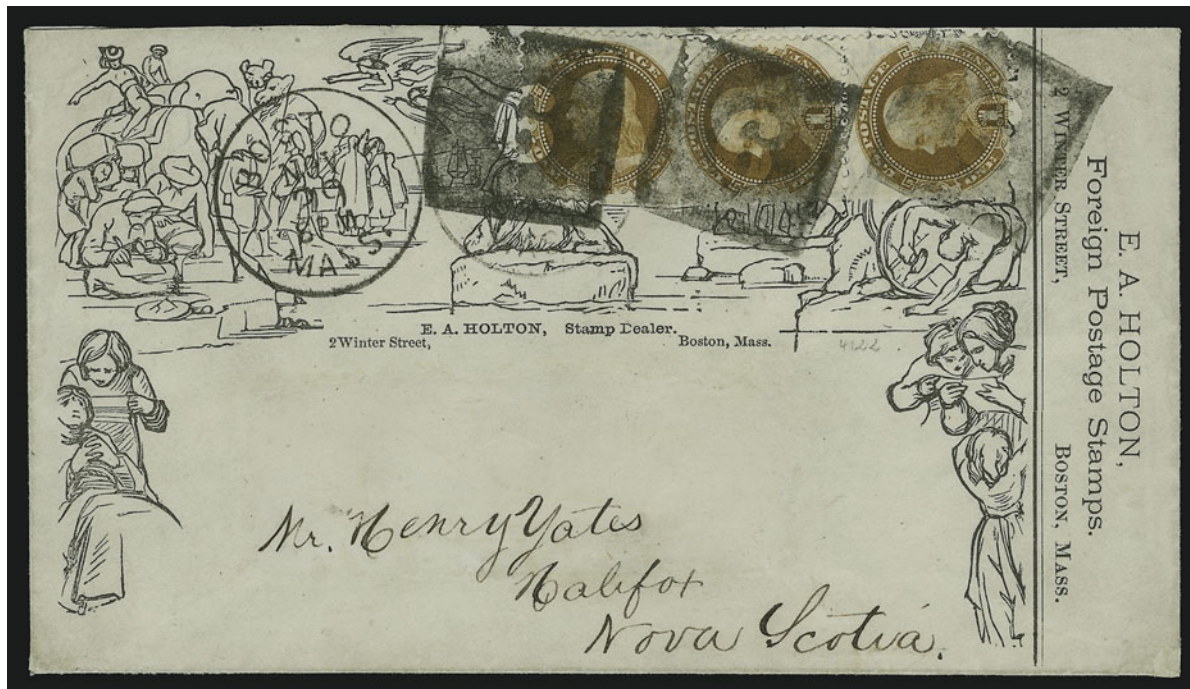 POSTAGE
POSTAGE
POSTAGE
BOSTON
MASS.
E. A. HOLTON, Stamp Dealer.
2 Winter Street, Boston, Mass.
4122
Mr. Henry Yates
Halifax
Nova Scotia.
E. A. HOLTON,
Foreign Postage Stamps.
2 WINTER STREET, BOSTON, MASS.